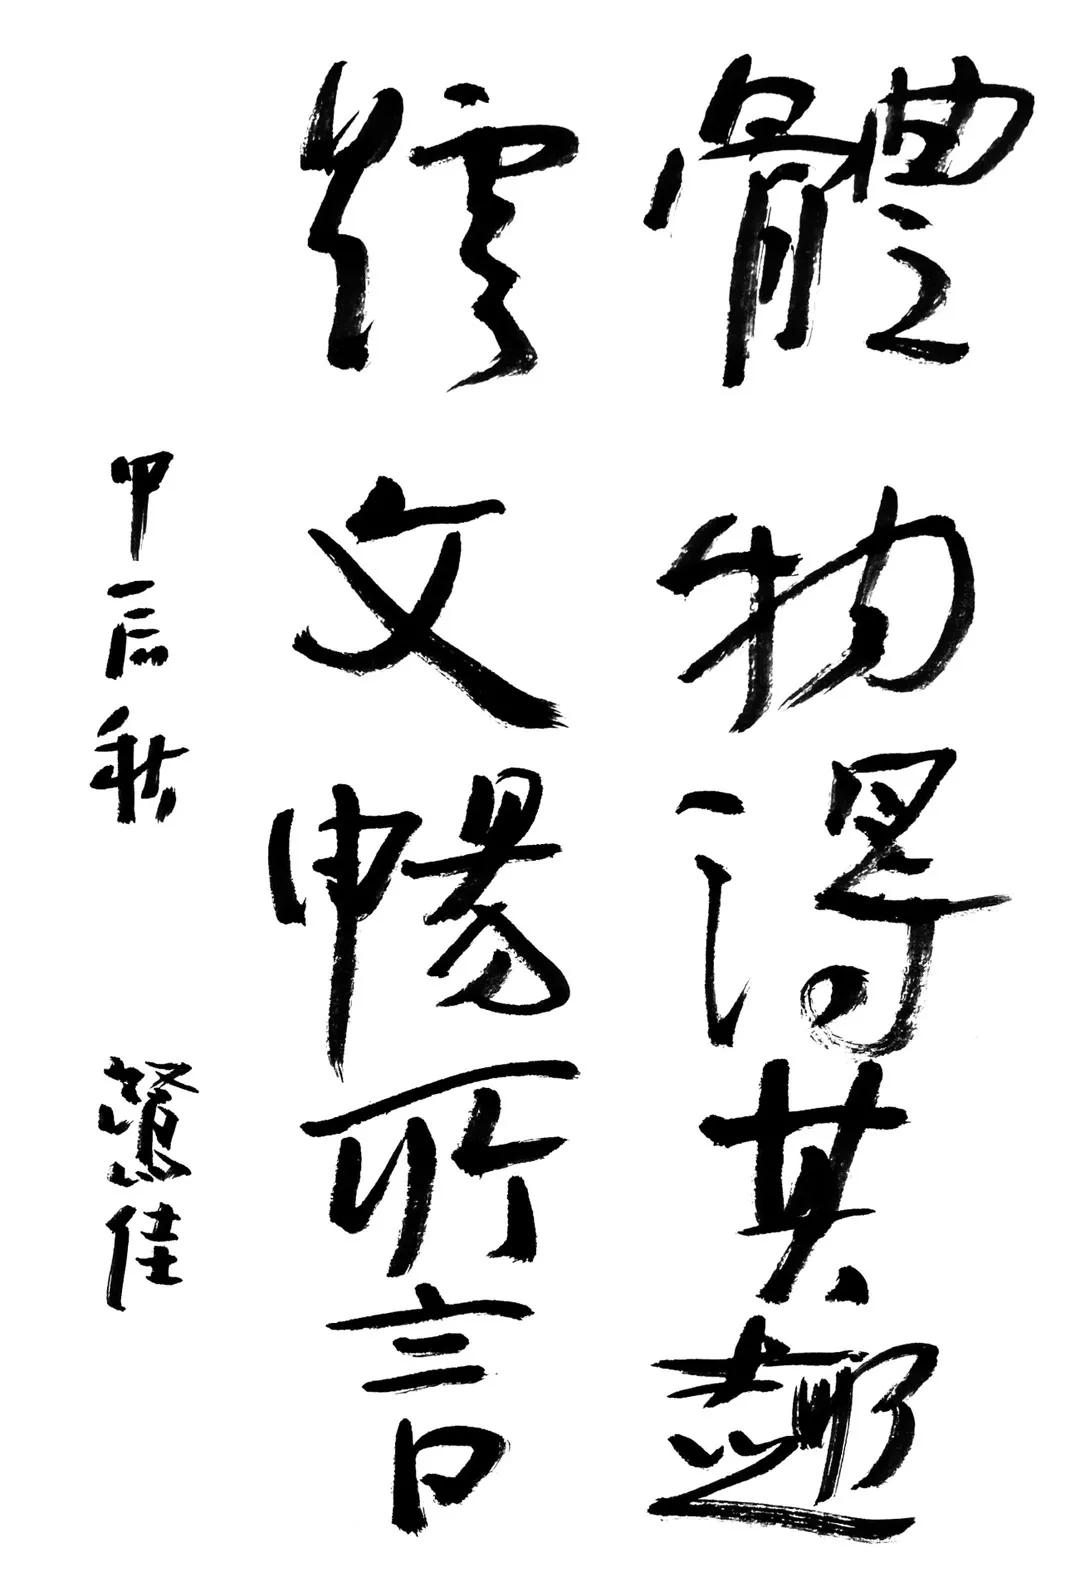 體物得其趣
文暢所言
甲辰秋
佳